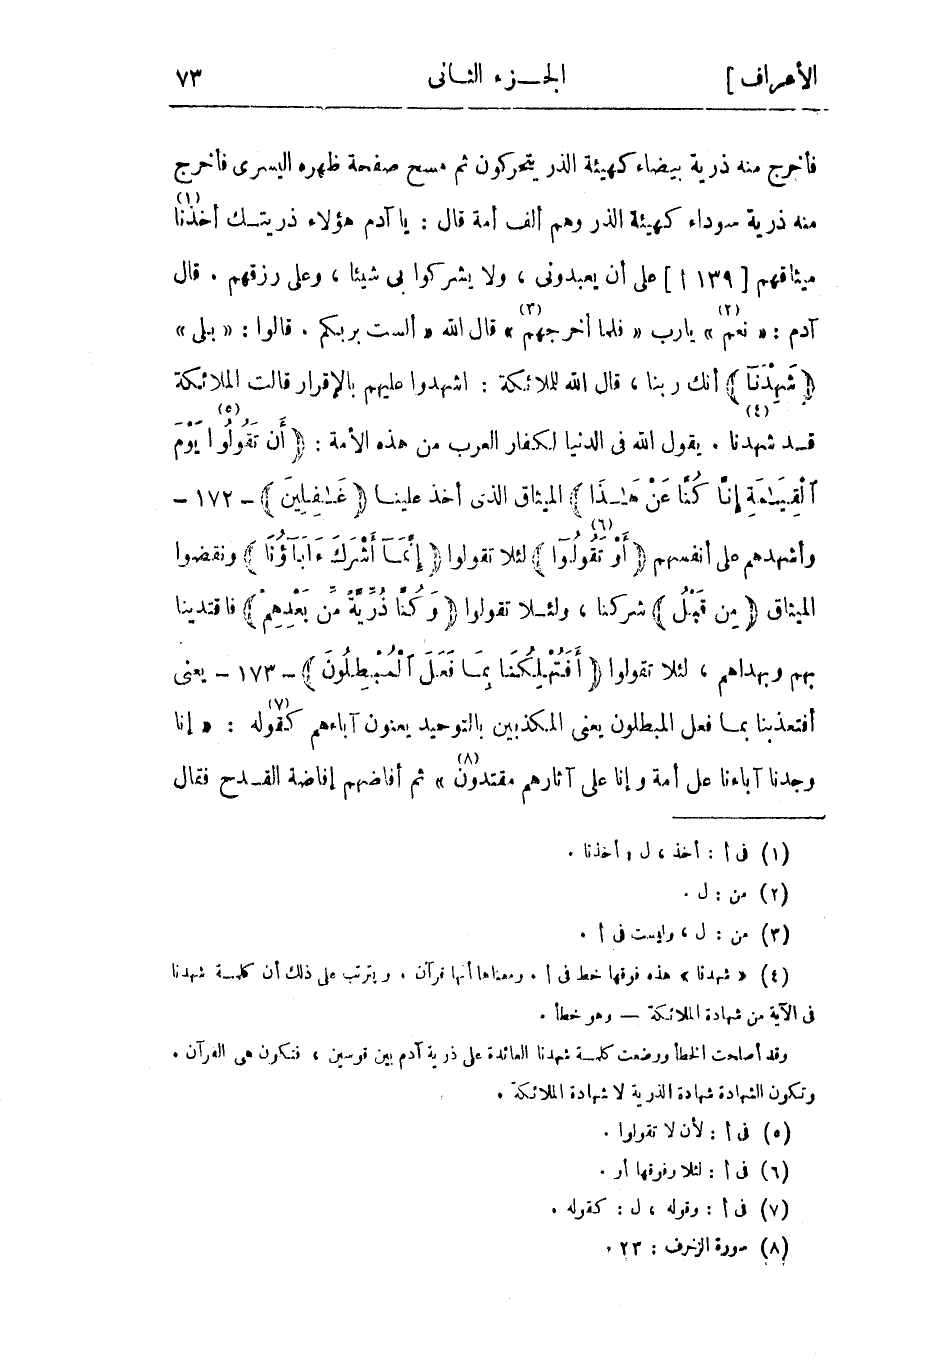 الأعراف ] الجـــزء الثـانى ٧٣
فأخرج منه ذرية بيضاء كهيئة الذر يتحركون ثم مسح صفحة ظهره اليسرى فأخرج
منه ذرية سوداء كهيئة الذر وهم ألف أمة قال : يا آدم هؤلاء ذريتـــك أخذنا (١)
ميثاقهم [ ١٣٩ أ ] على أن يعبدونى ، ولا يشركوا بى شيئا ، وعلى رزقهم . قال
آدم : « نعم (٢) » يارب « فلما أخرجهم (٣) » قال الله « ألست بربكم . قالوا : « بلى »
﴿ شَهِدْنَآ ﴾ أنك ربنا ، قال الله للملائكة : اشهدوا عليهم بالإقرار قالت الملائكة
قــد شهدنا (٤) . يقول الله فى الدنيا لكفار العرب من هذه الأمة : ﴿ أَن تَقُولُوا (٥) يَوْمَ
ٱلْقِيَـٰمَةِ إِنَّا كُنَّا عَنْ هَـٰذَا ﴾ الميثاق الذى أخذ علينـا ﴿ غَـٰفِلِينَ ﴾ ـ ١٧٢ ـ
وأشهدهم على أنفسهم ﴿ أَوْ تَقُولُوٓا (٦) ﴾ لئلا تقولوا ﴿ إِنَّمَآ أَشْرَكَ ءَابَآؤُنَا ﴾ ونقضوا
الميثاق ﴿ مِن قَبْلُ ﴾ شركنا ، ولئــلا تقولوا ﴿ وَكُنَّا ذُرِّيَّةً مِّن بَعْدِهِمْ ﴾ فاقتدينا
بهم وبهداهم ، لئلا تقولوا ﴿ أَفَتُهْلِكُنَا بِمَـا فَعَلَ ٱلْمُبْطِلُونَ ﴾ ـ ١٧٣ ـ يعنى
أفتعذبنا بمـا فعل المبطلون يعنى المكذبين بالتوحيد يعنون آباءهم كقوله (٧) : « إنا
وجدنا آباءنا على أمة وإنا على آثارهم مقتدون (٨) » ثم أفاضهم إفاضة القــدح فقال
(١) فى أ : أخذ ، ل : أخذنا .
(٢) من : ل .
(٣) من : ل ، وليست فى أ .
(٤) « شهدنا » هذه فوقها خط فى أ . ومعناها أنها قرآن . ويترتب على ذلك أن كلمــة شهدنا
فى الآية من شهادة الملائكة — وهو خطأ .
وقد أصلحت الخطأ ووضعت كلمــة شهدنا العائدة على ذرية آدم بين قوسين ، فتكون هى القرآن .
وتكون الشهادة شهادة الذرية لا شهادة الملائكة .
(٥) فى أ : لأن لا تقولوا .
(٦) فى أ : لئلا وفوقها أو .
(٧) فى أ : وقوله ، ل : كقوله .
(٨) سورة الزخرف : ٢٣ .